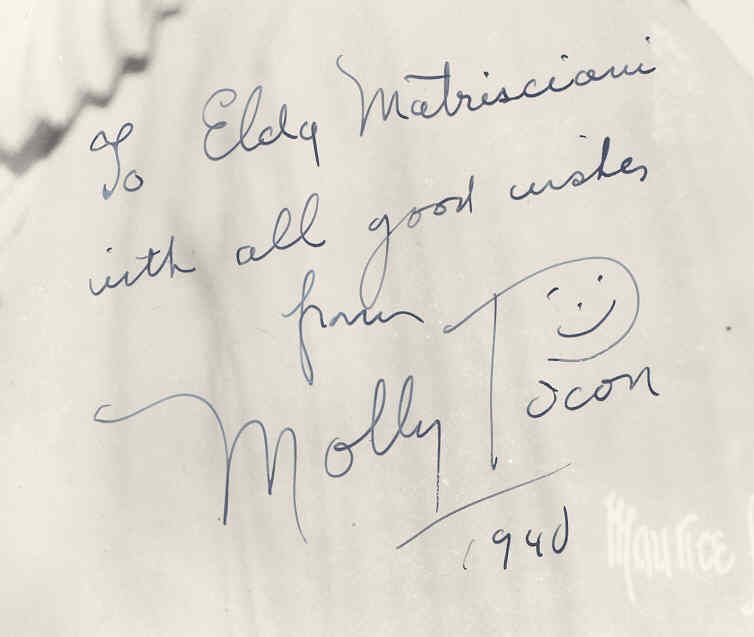 To Elda Matrisciani
with all good wishes
from
Molly Tocon
1940
Maurice